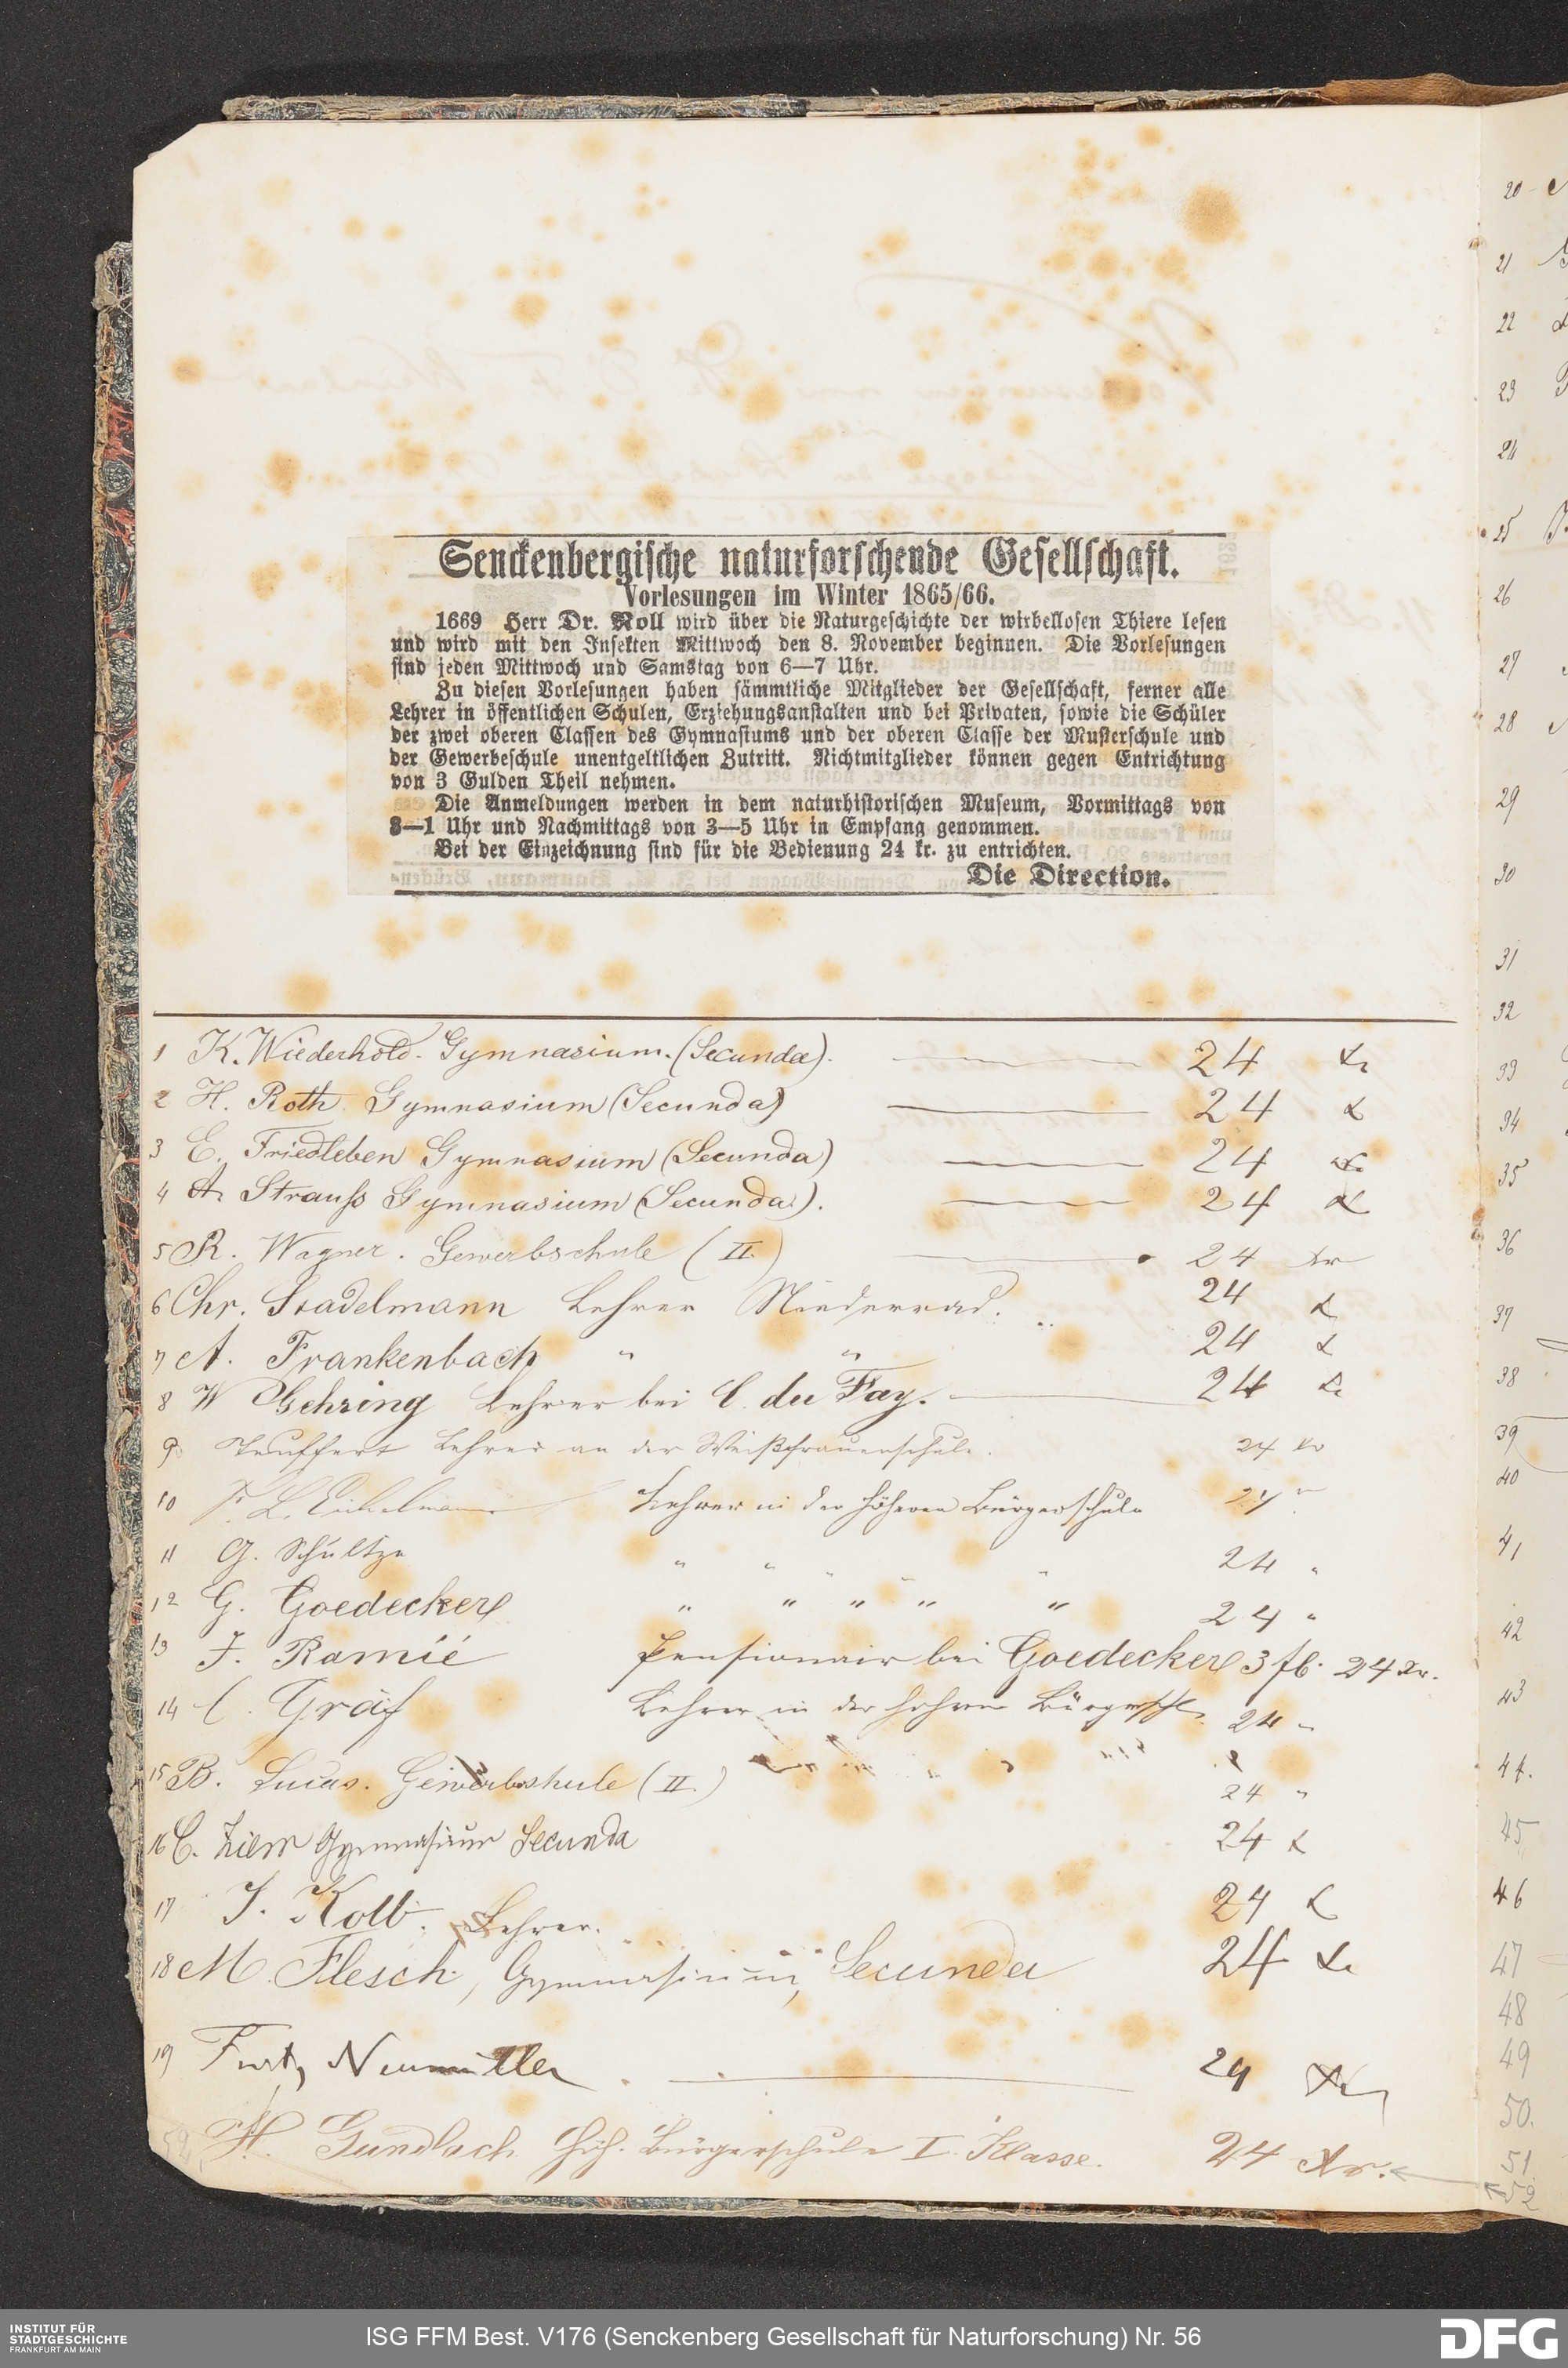 Senckenbergische naturforschende Gesellschaft.
Vorlesungen im Winter 1865/66.
1669 Herr Dr. Noll wird über die Naturgeschichte der wirbellosen Thiere lesen
und wird mit den Insekten Mittwoch den 8. November beginnen. Die Vorlesungen
sind jeden Mittwoch und Samstag von 6—7 Uhr.
Zu diesen Vorlesungen haben sämmtliche Mitglieder der Gesellschaft, ferner alle
Lehrer in öffentlichen Schulen, Erziehungsanstalten und bei Privaten, sowie die Schüler
der zwei oberen Classen des Gymnasiums und der oberen Classe der Musterschule und
der Gewerbeschule unentgeltlichen Zutritt. Nichtmitglieder können gegen Entrichtung
von 3 Gulden Theil nehmen.
Die Anmeldungen werden in dem naturhistorischen Museum, Vormittags von
8—1 Uhr und Nachmittags von 3—5 Uhr in Empfang genommen.
Bei der Einzeichnung sind für die Bedienung 24 kr. zu entrichten.
Die Direction.
1 K. Wiederhold. Gymnasium. (Secunda). 24 kr
2 H. Roth Gymnasium (Secunda) 24 kr
3 E. Friedleben Gymnasium (Secunda) 24 kr
4 A. Strauß Gymnasium (Secunda). 24 kr
5 R. Wagner. Gewerbschule (II) 24 kr
6 Chr. Stadelmann Lehrer Niederrad. 24 kr
7 A. Frankenbach " " 24 kr
8 W Gehring Lehrer bei C. du Fay. 24 kr
9 Lehrer an der Weißfrauenschule. 24 kr
10 F. L. Lehrer in der höheren Bürgerschule 24 "
11 G. Schultze " " " " " 24 "
12 G. Goedecker " " " " " 24 "
13 J. Ramié Pensionair bei Goedecker 3 fl. 24 kr.
14 C. Gräf Lehrer in der höheren Bürgersch. 24 "
15 B. Lucas. Gewerbshule (II.) 24 "
16 C. Ziem Gymnasium Secunda 24 kr
17 J. Kolb. Lehrer. 24 kr
18 M. Flesch, Gymnasium, Secunda 24 kr
19 Fritz Neumüller 24 kr
52 H. Gundlach. Höh. Bürgerschule I. Klasse. 24 kr.
20
21
22
23
24
25
26
27
28
29
30
31
32
33
34
35
36
37
38
39
40
41
42
43
44.
45
46
47
48
49
50.
51
52
INSTITUT FÜR
STADTGESCHICHTE
FRANKFURT AM MAIN
ISG FFM Best. V176 (Senckenberg Gesellschaft für Naturforschung) Nr. 56
DFG